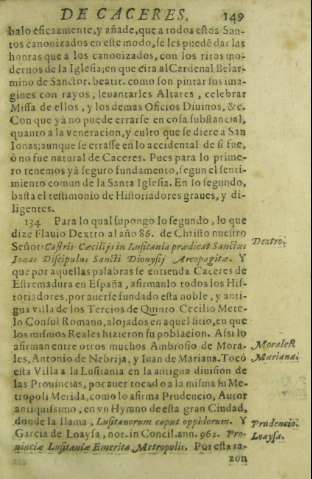 DE CACERES. 149
balo eficazmente, y añade, que a todos estos San-
tos canonizados en este modo, se les puede dar las
honras que a los canonizados, con los ritos mo-
dernos de la Iglesia; en que cita al Cardenal Belar-
mino de Sanctor. beatit. como son pintar sus ima-
gines con rayos, leuantarles Altares, celebrar
Missa de ellos, y los demas Oficios Diuinos, &c.
Con que ya no puede errarse en cosa substancial,
quanto a la veneracion, y culto que se diere a San
Ionas; aunque se errasse en lo accidental de si fue,
ò no fue natural de Caceres. Pues para lo prime-
ro tenemos yà seguro fundamento, segun el senti-
miento comun de la Santa Iglesia. En lo segundo,
basta el testimonio de Historiadores graues, y di-
ligentes.
134 Para lo qual supongo lo segundo, lo que
dize Flauio Dextro al año 86. de Christo nuestro
Señor: Castris Cæcilijs in Lusitania prædicat Sanctus
Dextro.
Ionas Discipulus Sancti Dionysij Areopagitæ. Y
que por aquellas palabras se entienda Caceres de
Estremadura en España, afirmanlo todos los His-
toriadores, por auerse fundado esta noble, y anti-
gua villa de los Tercios de Quinto Cecilio Mete-
lo Consul Romano, alojados en aquel sitio, en que
los mismos Reales hizieron su poblacion. Assi lo
afirman entre otros muchos Ambrosio de Mora-
Morales
les, Antonio de Nebrija, y Iuan de Mariana. Tocò
Mariana.
esta Villa a la Lusitania en la antigua division de
las Prouincias, por auer tocado a la misma su Me-
tropoli Merida, como lo afirma Prudencio, Autor
antiquissimo, en vn Hymno de esta gran Ciudad,
donde la llama, Lusitanorum caput oppidorum. Y
Prudencio.
Garcia de Loaysa, not. in Concil. ann. 962. Pro-
Loaysa.
uinciæ Lusitaniæ Emerita Metropolis. Por esta ra-
zon